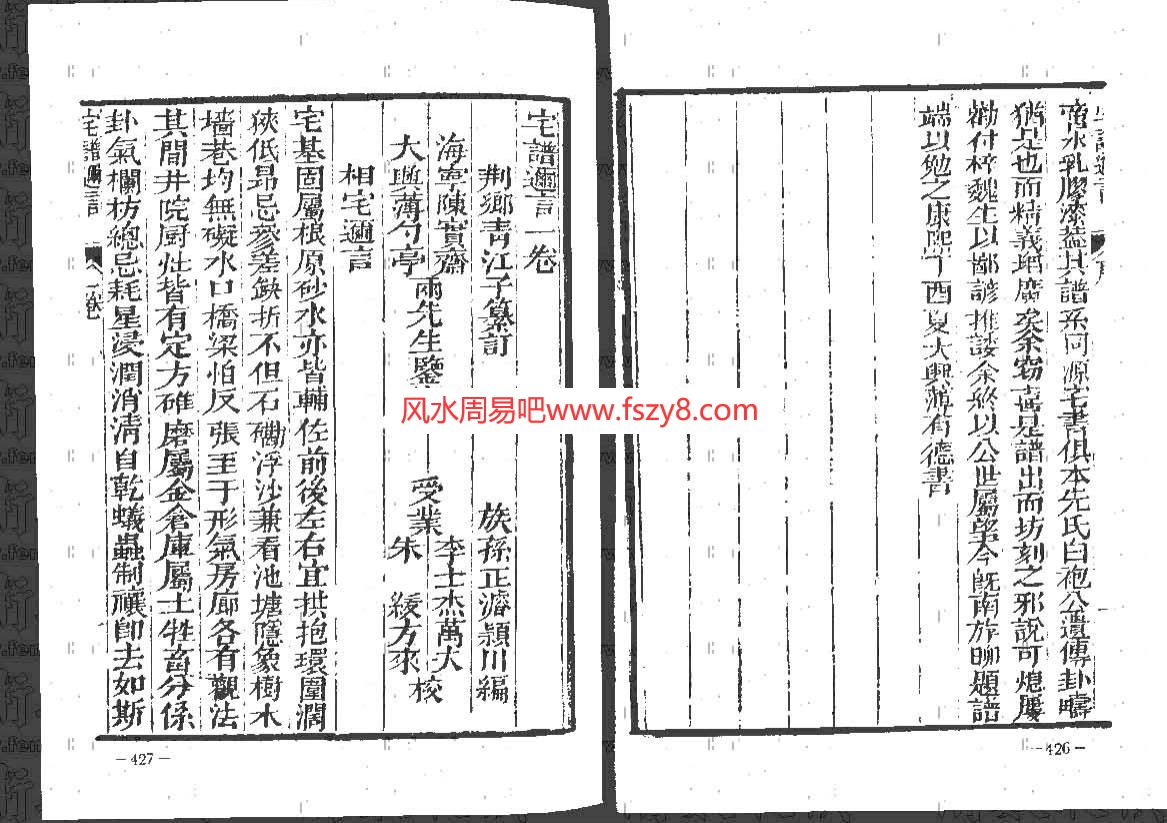 宅譜邇言
啻水乳膠漆蓋其譜系同源宅書俱本先氏白袍公遺傳卦疇
猶是也而精義增廣矣余竊喜是譜出而坊刻之邪說可熄屢
勸付梓魏生以鄙諺推諉余終以公世屬望今旣南旋聊題譜
端以勉之康熙丁酉夏大興薄有德書
-426-
宅譜邇言一卷
荆鄉靑江子纂訂 族孫正濬頴川編
海寧陳實齋
大興薄勺亭
兩先生鑒
受業
李士杰萬大
朱 緩方來
校
相宅邇言
宅基固屬根原砂水亦皆輔佐前後左右宜拱抱環圍濶
狹低昻忌參差缺折不但石磡浮沙兼看池塘隱象樹木
墻巷均無礙水口橋梁怕反張至于形氣房廊各有觀法
其間井院厨灶皆有定方碓磨屬金倉庫屬土牲畜分係
卦氣欄枋總忌耗星浸潤消淸自乾蟻蟲制禳卽去如斯
宅譜邇言 一卷
-427-
风水周易吧www.fszy8.com